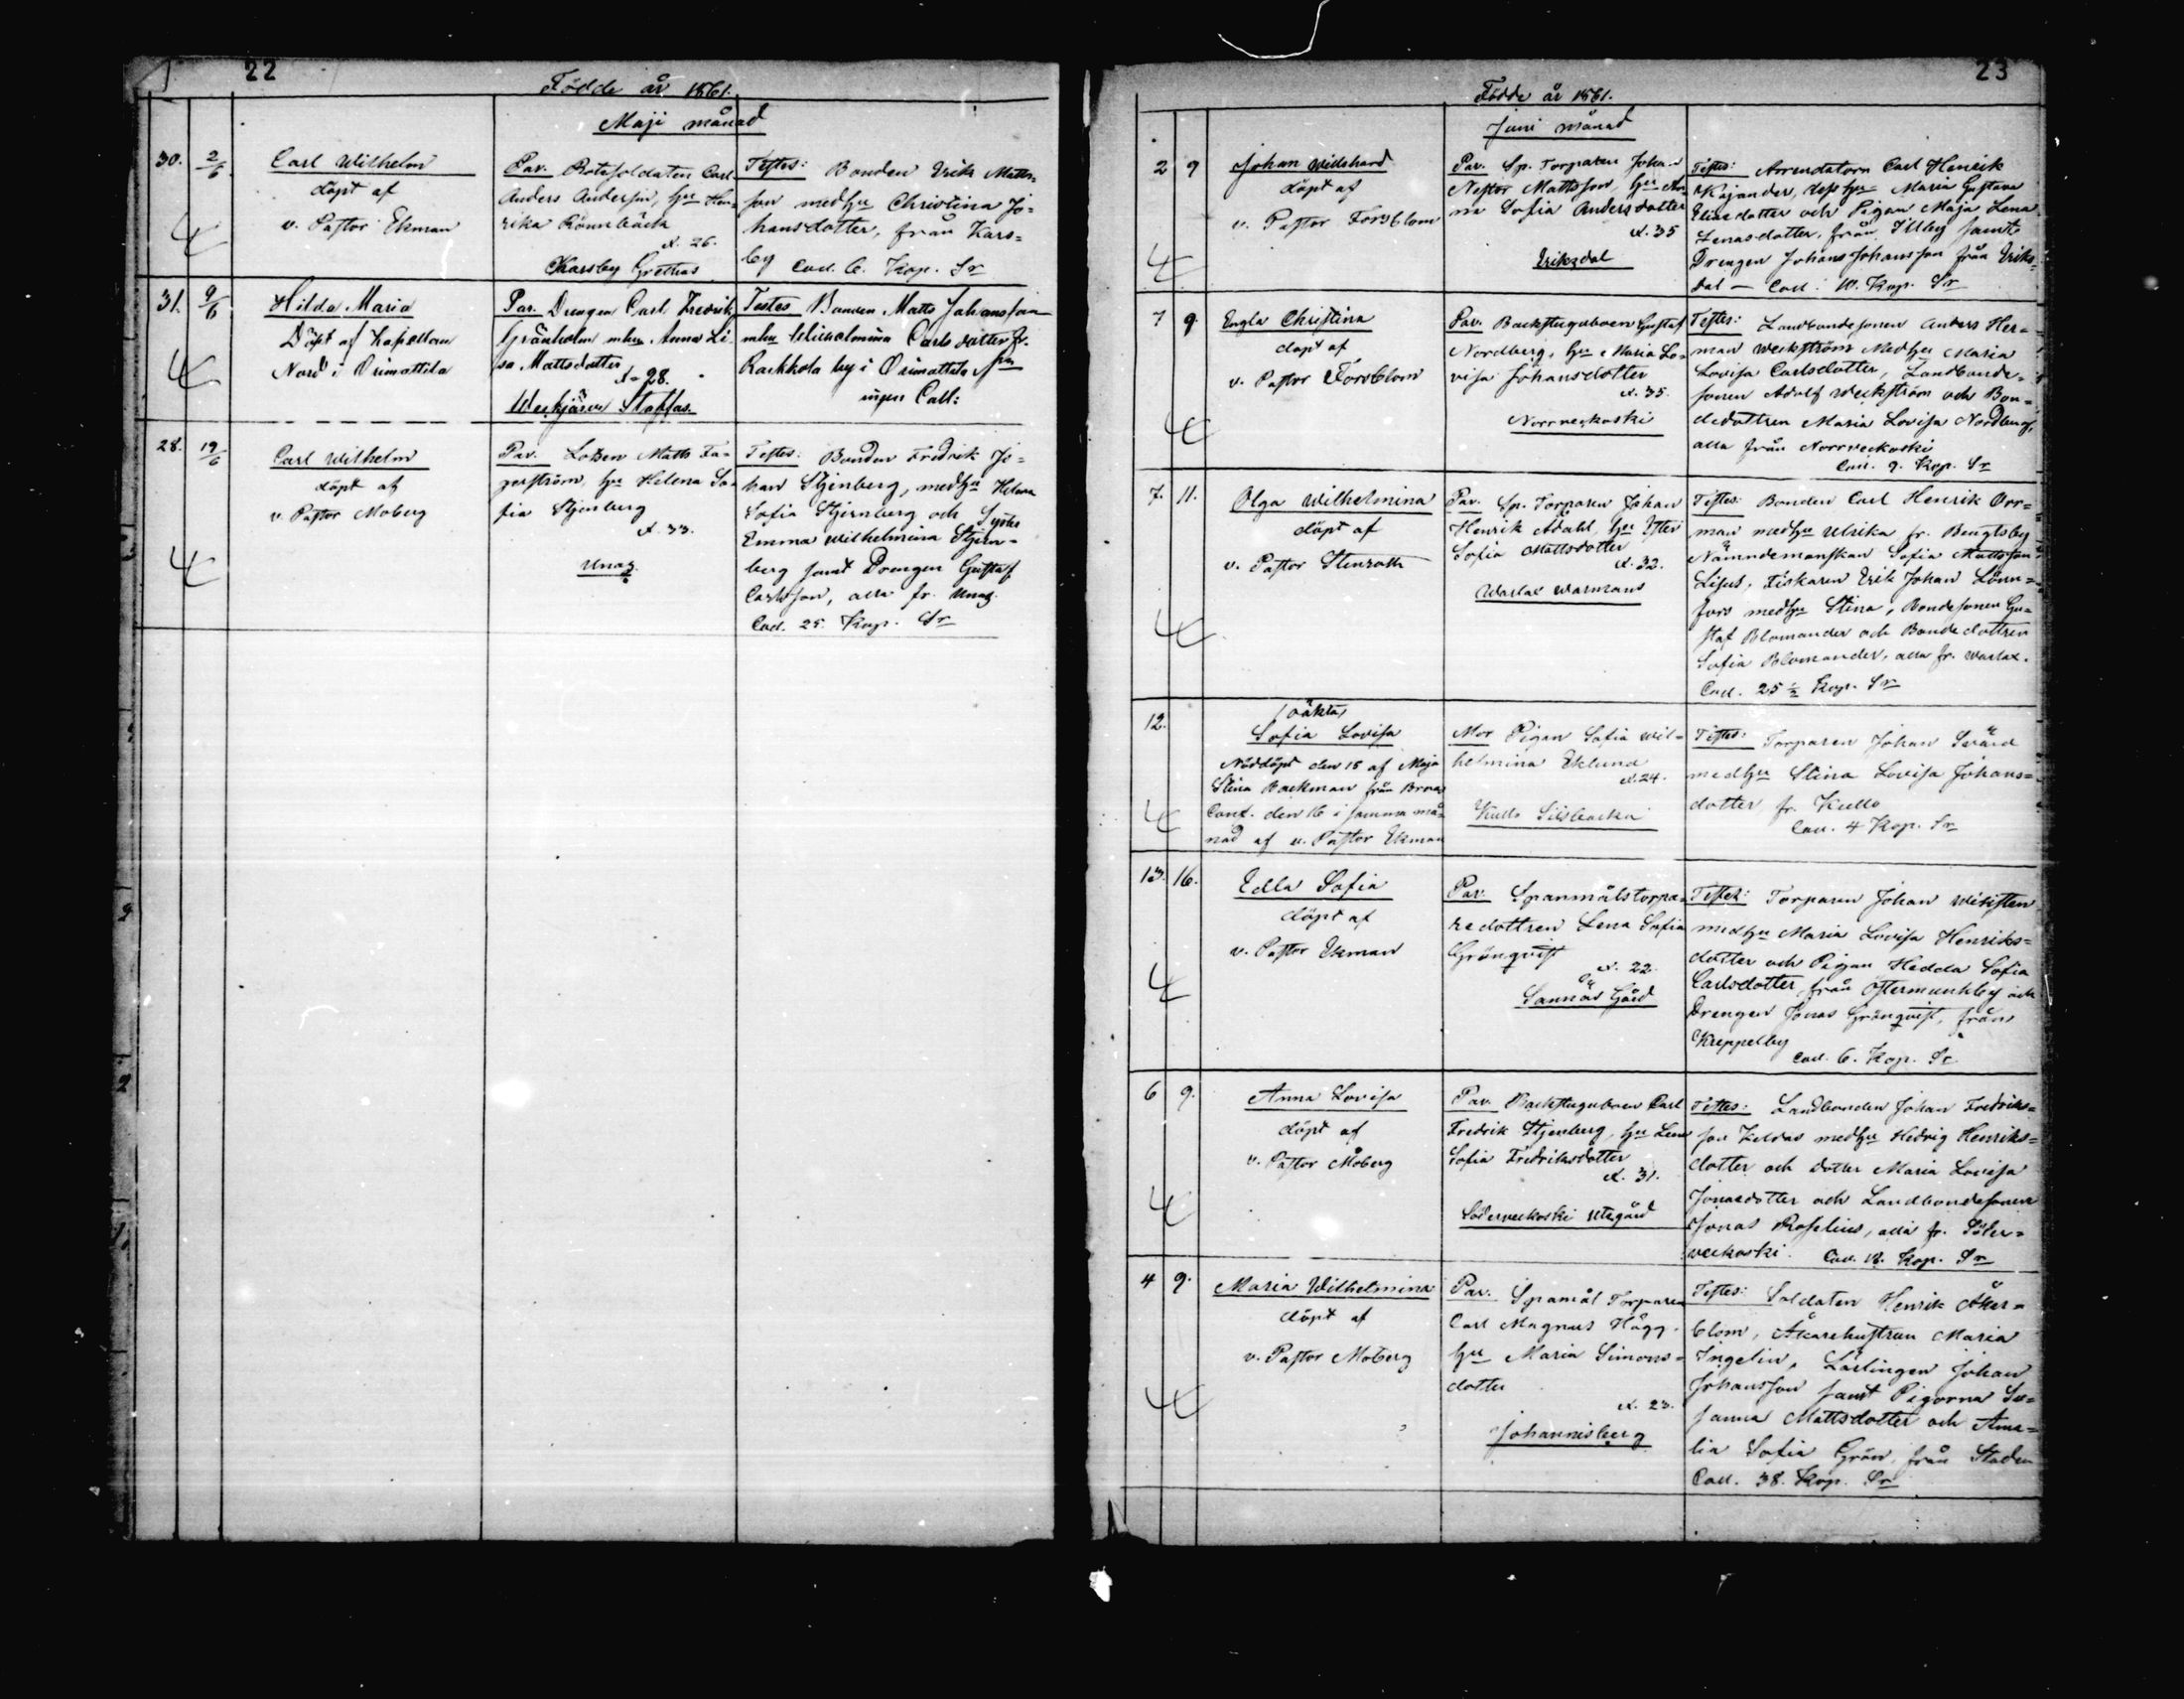 22
Födde år 1861.
Maji månad
30. 2/6
Carl Wilhelm
döpt af
v. Pastor Ekman
Par. Botssoldaten Carl
Anders Andersin, hu Hen=
rika Rönnbäck
æt. 26.
Karsby Grethas
Testes: Bonden Erik Matts=
son med hu Christina Jo=
hansdotter, från Kars=
by Coll. 6. Kop. Sr
31. 9/6
Hilda Maria
Döpt af Kapellan
Nord i Orimattila
Par. Drengen Carl Fredrik
Granholm m hu Anna Li=
sa Mattsdotter
æt 28.
Weckjärvi Staffas.
Testes Bonden Matts Johansson
m hu Wilhelmina Carlsdotter fr.
Rackkola by i Orimattila
ingen Coll:
28. 19/6
Carl Wilhelm
döpt af
v. Pastor Moberg
Par. Lotsen Matts Fa=
gerström, hu Helena So=
fia Stjernberg
æt. 33.
Unas
Testes: Bonden Fredrik Jo=
han Stjernberg, med hu Helena
Sofia Stjernberg och Syster
Emma Wilhelmina Stjern=
berg samt Drengen Gustaf
Carlsson, alla fr. Unas.
Coll. 25. Kop. Sr
23
Födde år 1861.
Juni månad
2 9
Johan Widehard
döpt af
v. Pastor Forsblom
Par. Sp. Torparen Johan
Nestor Mattsson, hu An=
na Sofia Andersdotter
æt. 35
Eriksdal
Testes: Arrendatorn Carl Henrik
Kajander, dess hu Maria Gustava
Eliasdotter och Pigan Maja Lena
Jonasdotter, från Illby samt
Drengen Johan Johansson från Eriks=
dal — Coll. 10. Kop. Sr
7 9.
Engla Christina
döpt af
v. Pastor Forsblom
Par. Backstuguboen Gustaf
Nordberg, hu Maria Lo=
visa Johansdotter
æt. 35.
Norrveckoski
Testes: Landbondesonen Anders Her=
man Weckström Med hu Maria
Lovisa Carlsdotter, Landbonde=
sonen Adolf Weckström och Bon=
dedottren Maria Lovisa Nordberg,
alla från Norrveckoski
Coll. 9. Kop. Sr
7. 11.
Olga Wilhelmina
döpt af
v. Pastor Stenroth
Par. Sp. Torparen Johan
Henrik Adahl hu Ester
Sofia Mattsdotter
æt. 32.
Warlax Warmans
Testes: Bonden Carl Henrik Orr=
man med hu Ulrika fr. Bengtsby
Nämndemanskan Sofia Mattsson
Fiskaren Erik Johan Lönn=
fors med hu Stina, Bondesonen Gu=
staf Blomander och Bondedottren
Sofia Blomander, alla fr. Warlax.
Coll. 25 1/2 Kop. Sr
12.
(oäkta)
Sofia Lovisa
Nöddöpt den 15 af Maja
Stina Backman från Borgå
Conf. den 16 i samma må=
nad af v. Pastor Ekman
Mor Pigan Sofia Wil=
helmina Eklund
æt. 24.
Kullo Silsbacka
Testes: Torparen Johan Svärd
med hu Stina Lovisa Johans=
dotter fr. Kullo
Coll. 4 Kop. Sr
13. 16.
Edla Sofia
döpt af
v. Pastor Ekman
Par. Spanmålstorpa=
redottren Lena Sofia
Grönqvist
æt. 22.
Sannäs Gård
Testes: Torparen Johan Wiksten
med hu Maria Lovisa Henriks=
dotter och Pigan Hedda Sofia
Carlsdotter, från Östermunkby och
Drengen Jonas Grönqvist, från
Kreppelby
Coll. 6. Kop. Sr
6 9.
Anna Lovisa
döpt af
v. Pastor Moberg
Par. Backstuguboen Carl
Fredrik Stjernberg, hu Lena
Sofia Fredriksdotter
æt. 31.
Söderveckoski Utegård
Testes: Landbonden Johan Fredriks=
son Keldas med hu Hedvig Henriks=
dotter och dotter Maria Lovisa
Jonasdotter och Landbondesonen
Jonas Roselius, alla fr. Söder=
veckoski. Coll. 18. Kop. Sr
4 9.
Maria Wilhelmina
döpt af
v. Pastor Moberg
Par. Spanmål Torparen
Carl Magnus Hägg
hu Maria Simons=
dotter
æt. 23.
Johannisberg
Testes: Soldaten Henrik Åker=
blom, Åkarehustrun Maria
Ingelin, Lärlingen Johan
Johansson samt Pigorna Su=
sanna Mattsdotter och Ama=
lia Sofia Grön, från Staden
Coll. 38. Kop. Sr